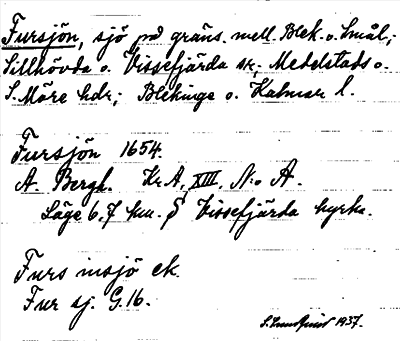 Fursjön, sjö på gräns. mell. Blek. o. Smål.;
Sillhövda o. Vissefjärda sr.; Medelstads o.
S. Möre hdr.; Blekinge o. Kalmar l.
Fursjön 1654.
A. Bergh. Kr.A, XIII, N:o A.
Läge 6,7 km. S Vissefjärda kyrka.
Furs insjö ek.
Fur sj. G.16.
S. Lundquist 1937.